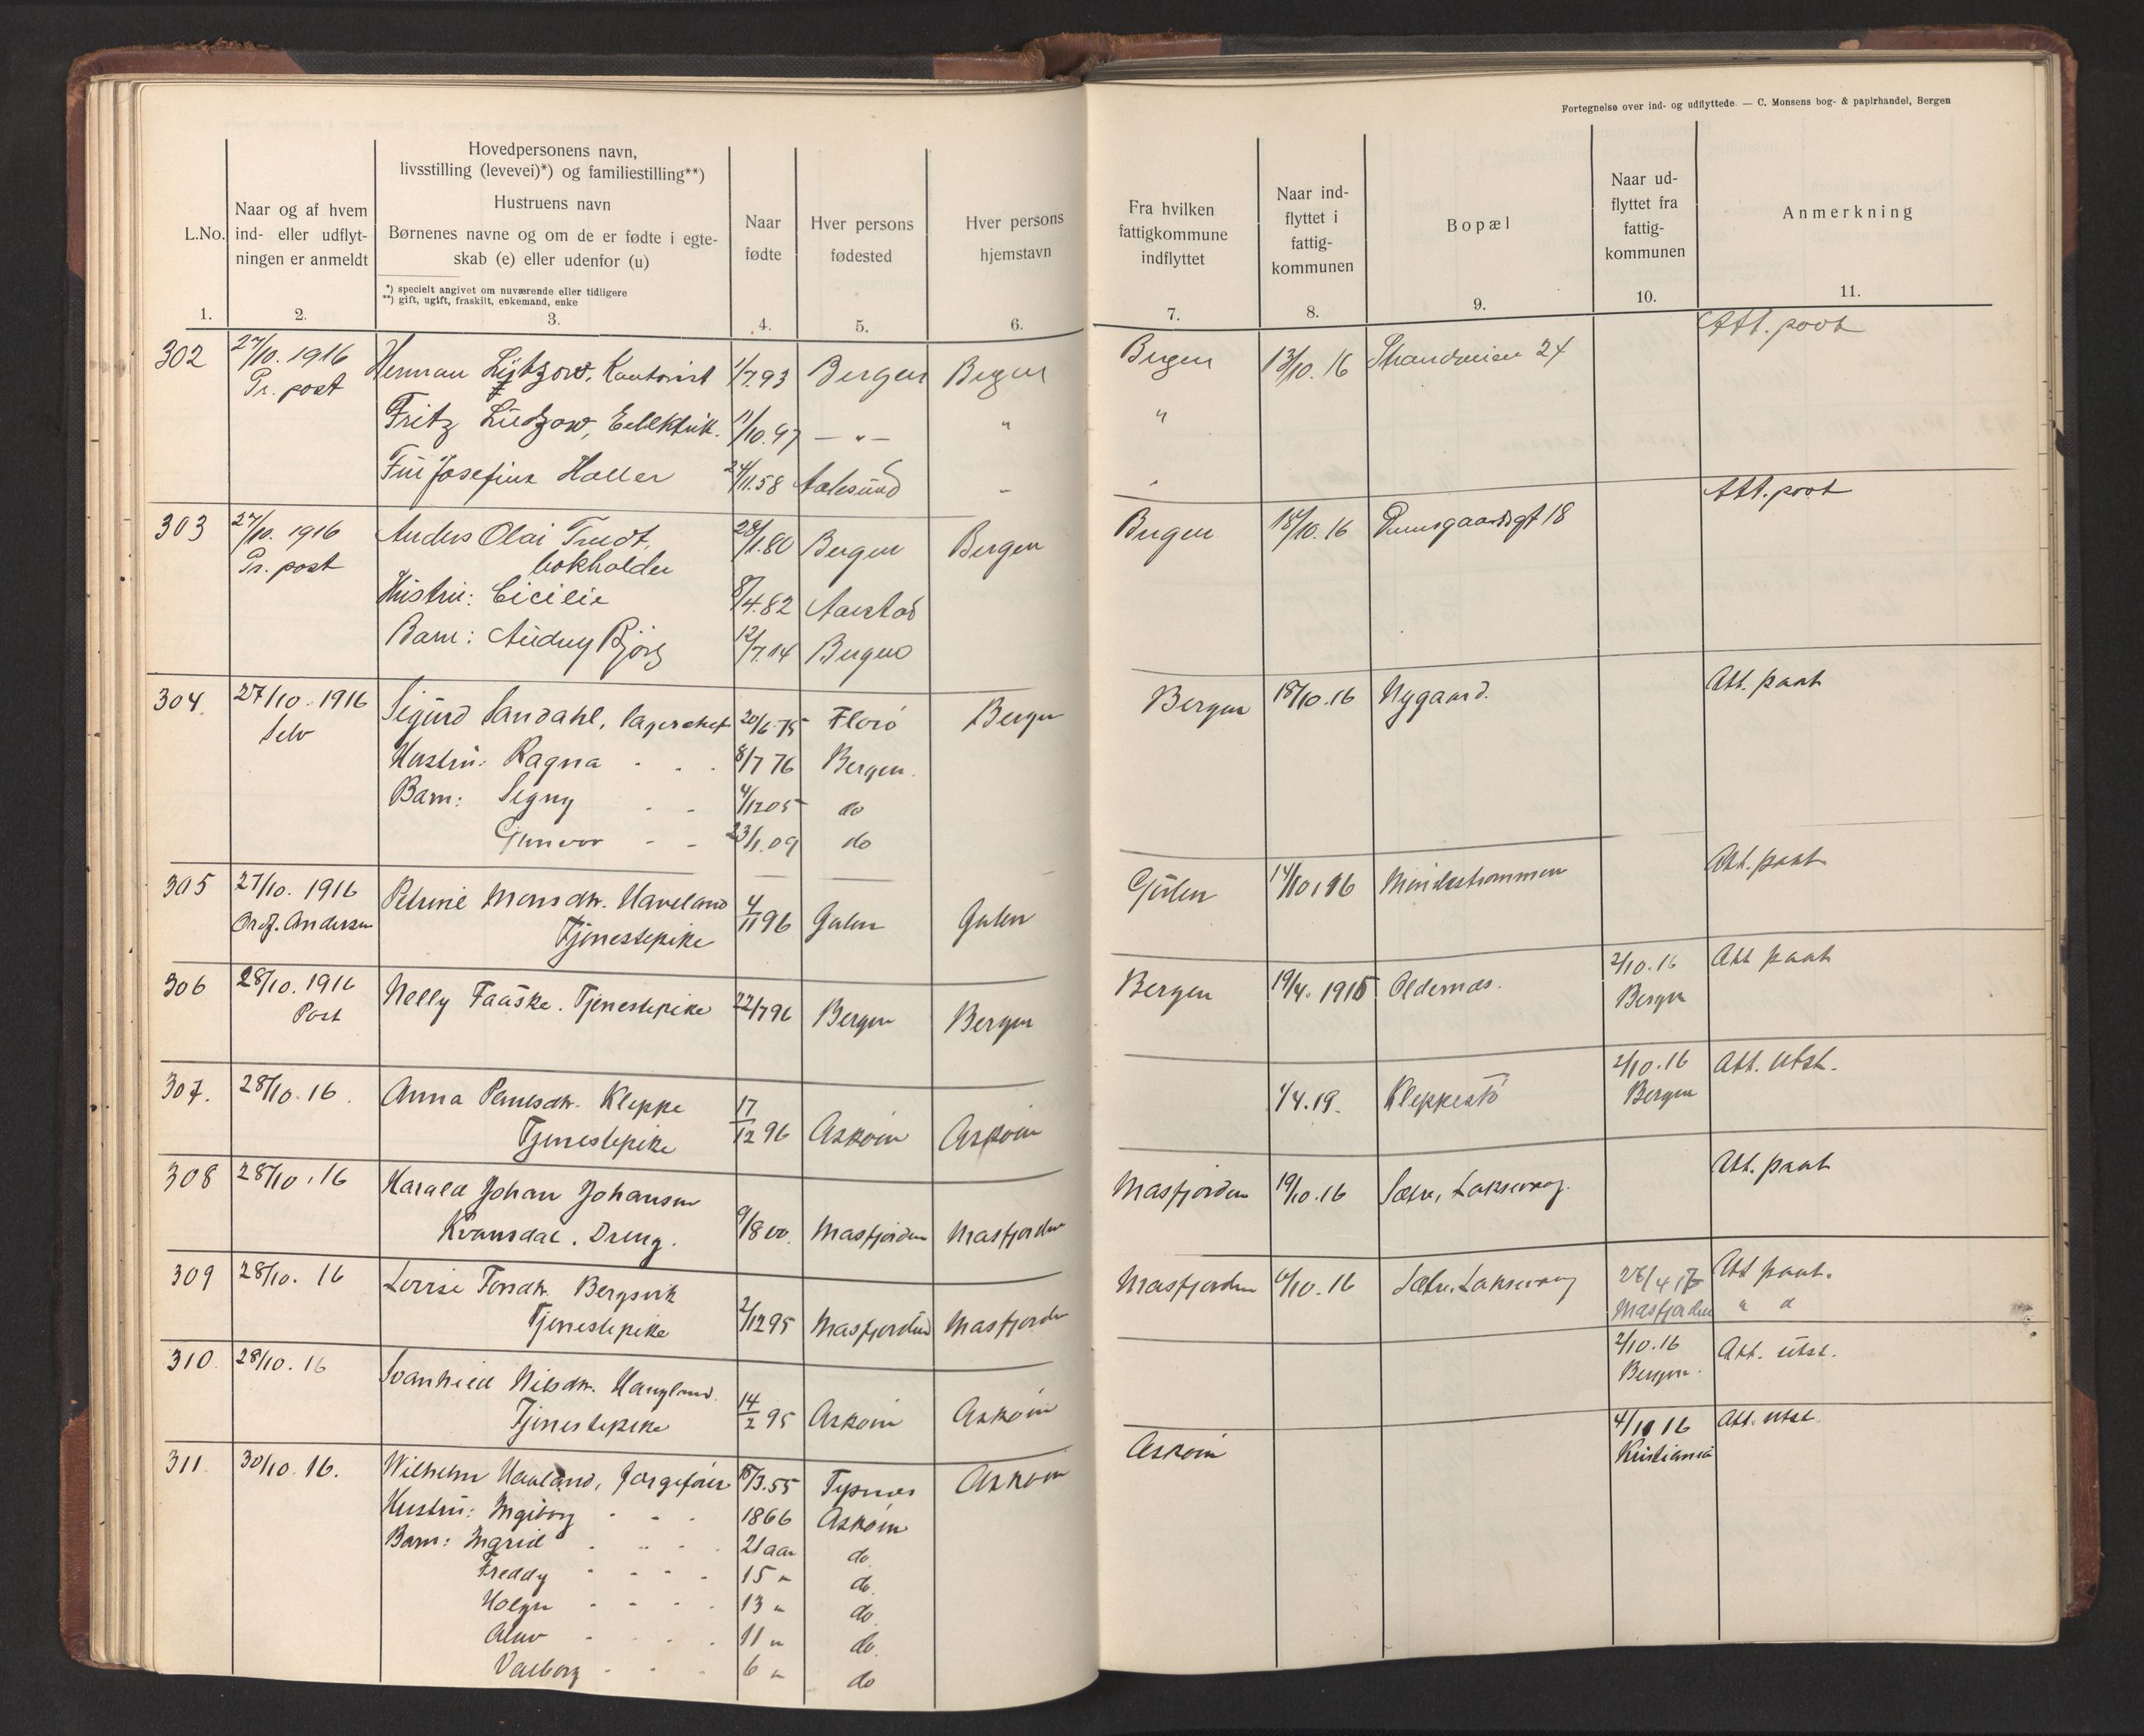 Fortegnelse over ind- og udflyttede. — C. Monsens bog- & papirhandel, Bergen
L.No.
1.
Naar og af hvem
ind- eller udflyt-
ningen er anmeldt
2.
Hovedpersonens navn,
livsstilling (levevei)*) og familiestilling**)
Hustruens navn
Børnenes navne og om de er fødte i egte-
skab (e) eller udenfor (u)
*) specielt angivet om nuværende eller tidligere
**) gift, ugift, fraskilt, enkemand, enke
3.
Naar
fødte
4.
Hver persons
fødested
5.
Hver persons
hjemstavn
6.
Fra hvilken
fattigkommune
indflyttet
7.
Naar ind-
flyttet i
fattig-
kommunen
8.
Bopæl
9.
Naar ud-
flyttet fra
fattig-
kommunen
10.
Anmerkning
11.
302 27/10. 1916 Herman Lützow, Kontorist 1/7 93 Bergen Bergen Bergen 13/10. 16 Strandveien 24 Att. paat
Pr. post
Fritz Lützow, 11/10. 97 — " — " "
Frü Josefine Haller 24/11. 58 Aalesund
303 27/10. 1916 Anders Olai 28/1. 80 Bergen Bergen Bergen 18/10. 16 Damsgaardsgt 18 Att. paat
Pr. post bokholder
Hustru: Cicilie 8/4. 82 Aarstad
Barn: Audny Bjørg 12/7. 14 Bergen
304. 27/10. 1916 Sigurd Sandahl, lagerchef 20/6. 75 Florö Bergen Bergen 18/10. 16 Nygaard. Att. paat
Selv
Hustru: Ragna 8/7 76 Bergen.
Barn: Signy 4/12 05 do
Gunvor 23/1. 09 do
305 27/10. 1916 Petrine Monsdtr. Haveland 4/11 96 Gulen Gulen Gulen 14/10. 16 Att. paat
Andersen Tjenestepike
306 28/10. 1916 Nelly Faaske. Tjenestepike 22/7 96 Bergen Bergen Bergen 19/4. 1915 Oldernæs. 2/10. 16 Att paat
Post Bergen
307. 28/10. 16. Anna Kleppe 17/12 96 Askøin Askøin 1/4. 19. Kleppestö 2/10. 16 Att. utst.
Tjenestepike Bergen
308 28/10. 16 Harald Johan Johansen 9/8 00. Masfjorden Masfjorden Masfjorden 19/10. 16 Sætre, Laksevaag. Att. paat
Kvamsdal. Dreng.
309 28/10. 16 Lovise Bergsvik 2/12 95 Masfjorden Masfjorden Masfjorden 10. 16 Sætre, Laksevaag 28/4 17 Att paat.
Tjenestepike Masfjorden
310. 28/10. 16 Svanhild Nilsdtr. Haugland. 14/2 95 Askøin Askøin 2/10. 16 Att. utst.
Tjenestepike Bergen.
311 30/10. 16. Wilhelm Haaland, 3. 55 Askøin Askøin 16 Att. utst.
Kristiania
Hustru: Ingiborg 1866 Askøin
Barn: Ingrid 21 aar do.
Freddy 15 " do.
Holger 13 " do.
Alav 11 " do.
Valborg 6 " do